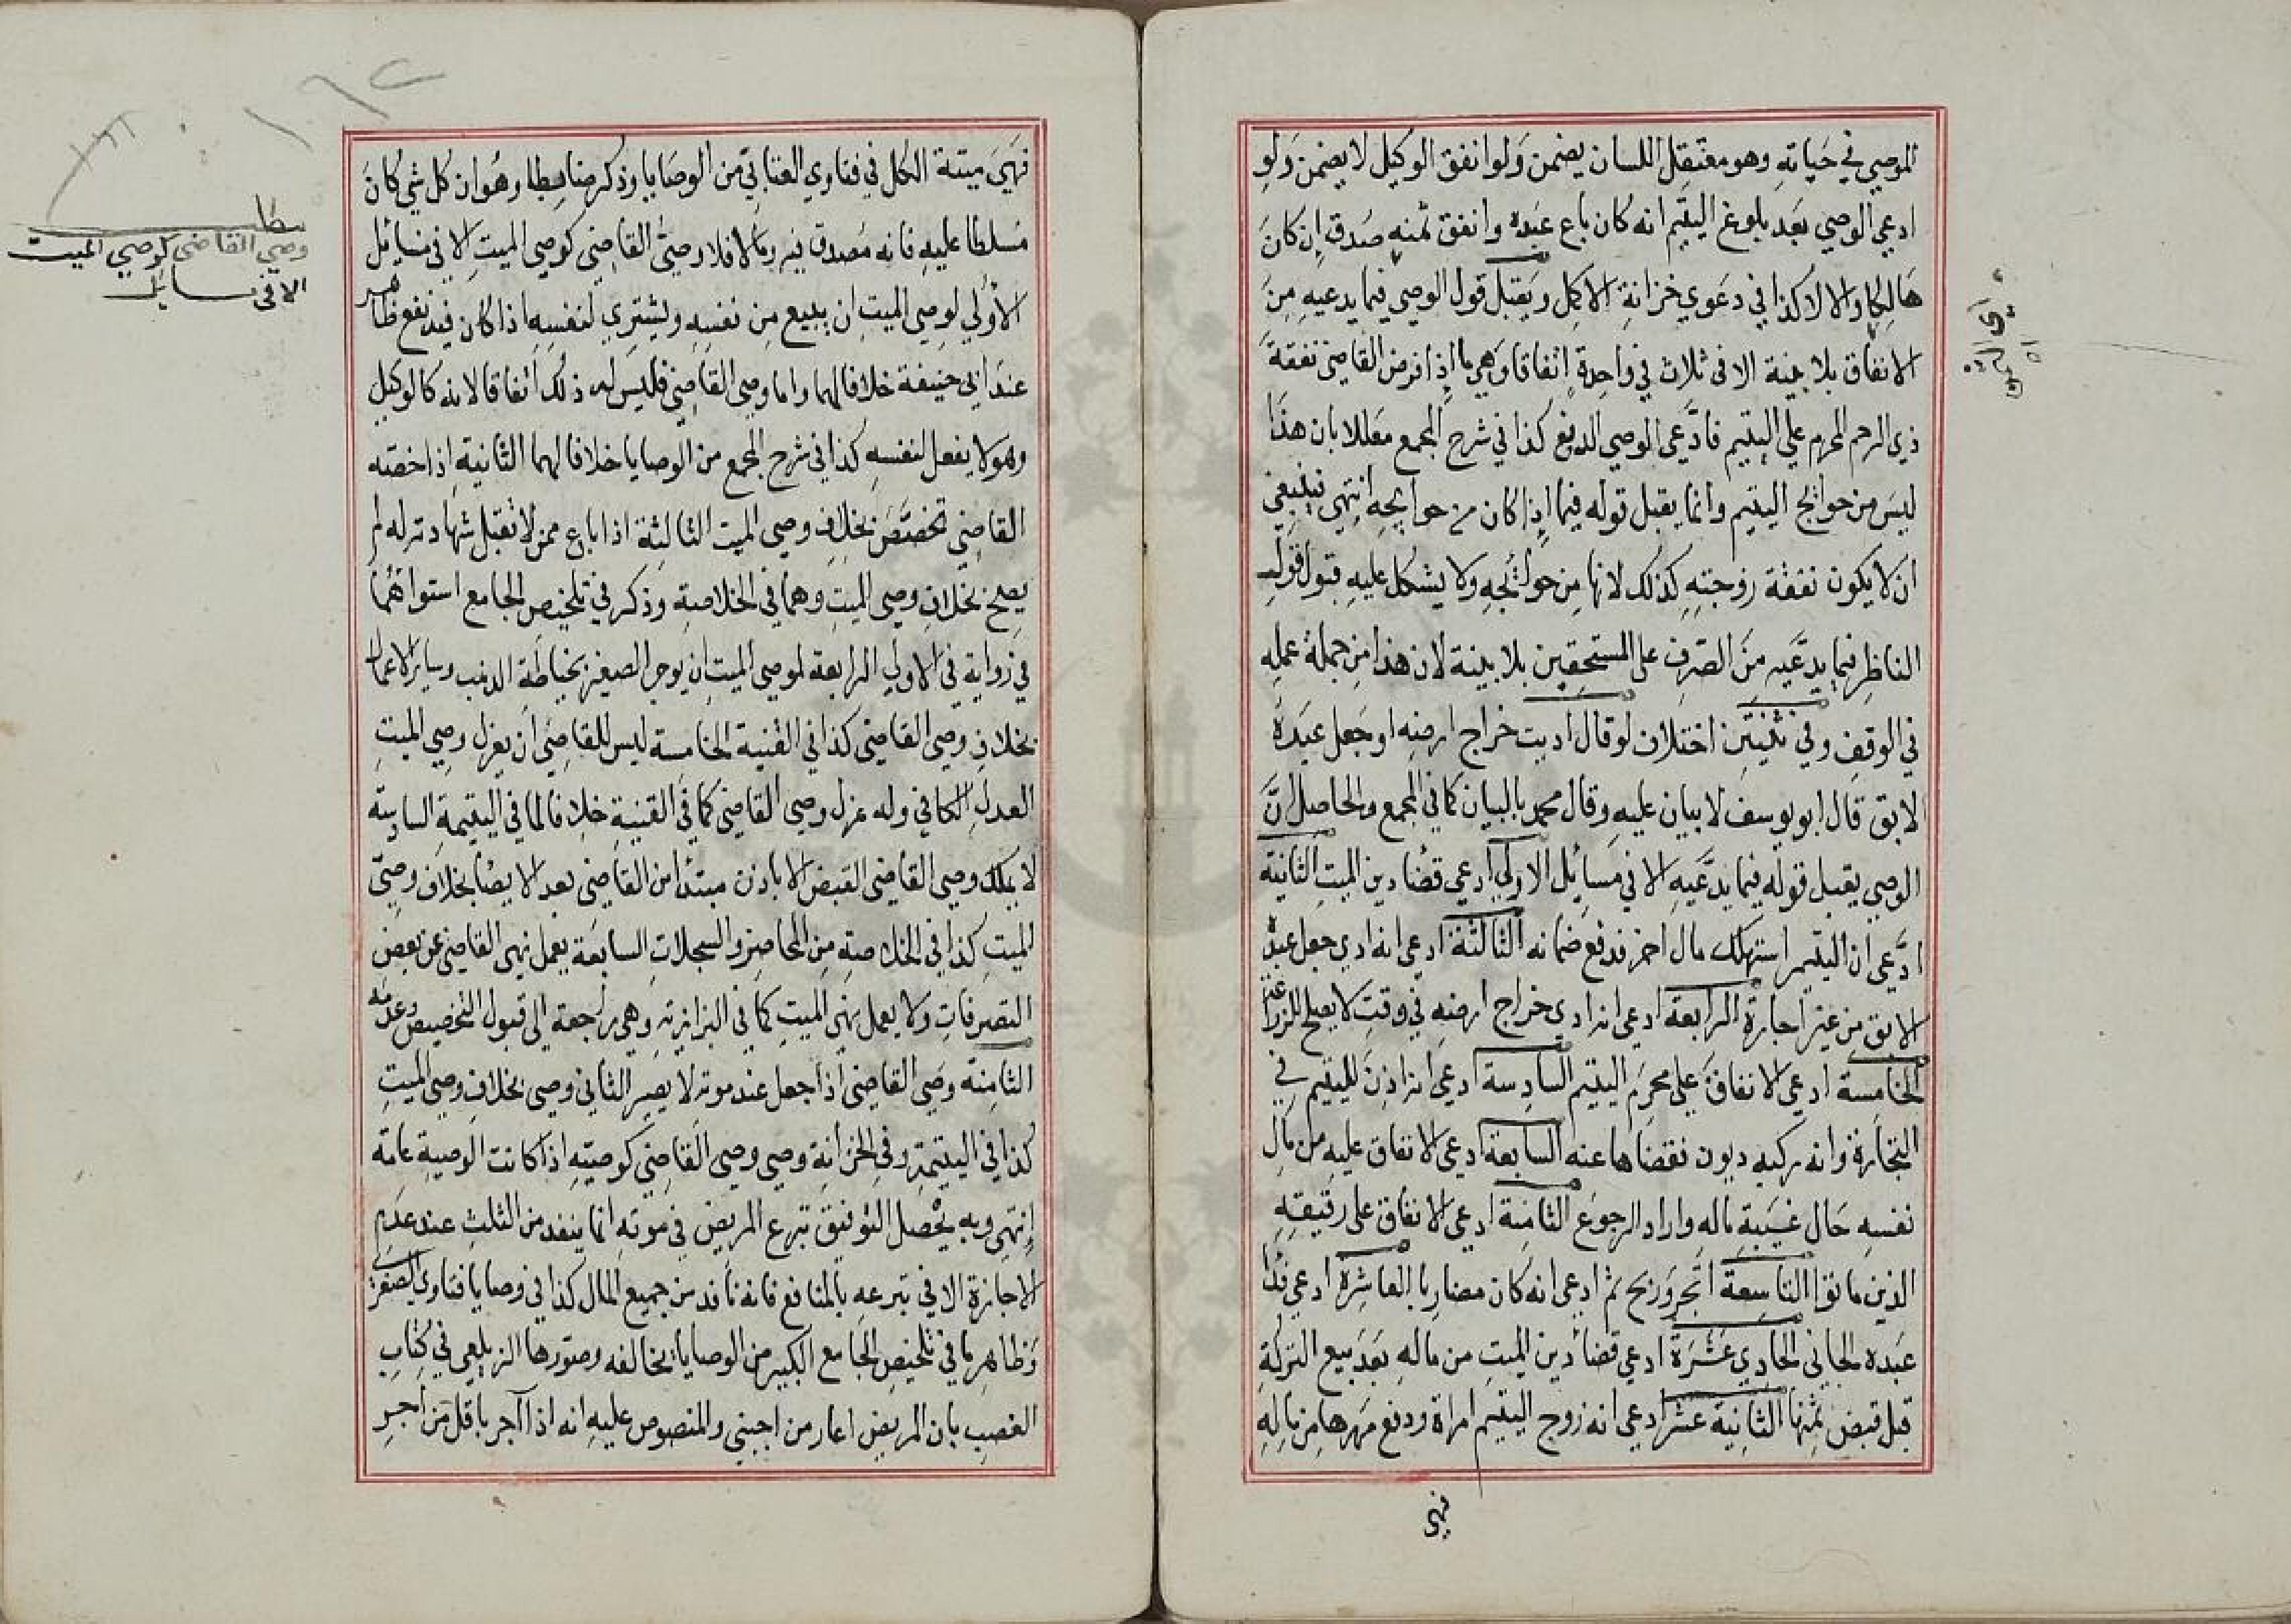 الموصي في حياته وهو معتقل اللسان يضمن ولو انفق الوكيل لا يضمن ولو
ادعي الوصي بعد بلوغ اليتيم انه كان باع عبده وانفق ثمنه صدق ان كان
هالكا والا لا كذا في دعوي خزانة الاكمل ويقبل قول الوصي فيما يدعيه من
الانفاق بلا بينة الا في ثلاث في واحدة اتفاقا وهي ما اذا فرض القاضي نفقة
ذي الرحم المحرم علي اليتيم فادعى الوصي الدفع كذا في شرح المجمع معللا بان هذا
ليس من حوائج اليتيم وانما يقبل قوله فيما اذا كان من حوايجه انتهي فينبغي
ان لا يكون نفقة زوجته كذلك لانها من حوائجه ولا يشكل عليه قبول قول
الناظر فيما يدعيه من الصرف على المستحقين بلا بينة لان هذا من جملة عمله
في الوقف وفي ثنتين اختلاف لو قال اديت خراج ارضه او جعل عبده
لابق قال ابو يوسف لا بيان عليه وقال محمد بالبيان كما في المجمع والحاصل ان
الوصي يقبل قوله فيما يدعيه الا في مسائل الاولي ادعي قضا دين الميت الثانية
ادعى ان اليتيم استهلك مال اخر فدفع ضمانه الثالثة ادعي انه ادي جعل عبده
الابق من غير اجارة الرابعة ادعي انه ادي خراج ارضه في وقت لا يصلح للزراعة
الخامسة ادعي الانفاق على محرم اليتيم السادسة ادعي انه اذن لليتيم في
التجارة وانه ركبه ديون فقضاها عنه السابعة ادعي الانفاق عليه من مال
نفسه حال غيبة ماله واراد الرجوع الثامنة ادعي الانفاق على رقيقه
الذين ماتوا التاسعة اتجر وربح ثم ادعي انه كان مضاربا العاشرة ادعي فدا
عبده الجاني الحادي عشرة ادعي قضا دين الميت من ماله بعد بيع التركة
قبل قبض ثمنها الثانية عشر ادعي انه زوج اليتيم امراة ودفع مهرها من ماله
فهي
فهي ميتة الكل في فتاوي العتابي من الوصايا وذكر ضابطا وهو ان كل شي كان
مسلطا عليه فانه مصدق فيه وما لا فلا وصي القاضي كوصي الميت الا في مسائل
الاولي لوصي الميت ان يبيع من نفسه ويشتري لنفسه اذا كان فيه نفع ظاهر
عند ابي حنيفة خلافا لهما واما وصي القاضي فليس له ذلك اتفاقا لانه كالوكيل
وهو لا يفعل لنفسه كذا في شرح المجمع من الوصايا خلافا لهما الثانية اذا خصته
القاضي تخصص بخلاف وصي الميت الثالثة اذا باع ممن لا تقبل شهادته له لم
يصلح بخلاف وصي الميت وهما في الخلاصة وذكر في تلخيص الجامع استواهما
في رواية في الاولي الرابعة لوصي الميت ان يوجر الصغير بخياطة الذهب وساير الاعمال
بخلاف وصي القاضي كذا في القنية الخامسة ليس للقاضي ان يعزل وصي الميت
العدل الكافي وله عزل وصي القاضي كما في القنية خلافا لما في اليتيمة السادسة
لا يملك وصي القاضي القبض الا باذن مبتدأ من القاضي بعد الايصا بخلاف وصي
الميت كذا في الخلاصة من المحاضر والسجلات السابعة يعمل نهي القاضي عن بعض
التصرفات ولا يعمل نهي الميت كما في البزازية وهي راجعة الي قبول التخصيص وعدمه
الثامنة وصي القاضي اذا جعل عند موته لا يصير الثاني وصي بخلاف وصي الميت
كذا في اليتيمة وفي الخزانة وصي وصي القاضي كوصيته اذا كانت الوصية عامة
انتهي وبه يحصل التوفيق تبرع المريض في موته انما ينفد من الثلث عند عدم
الاجازة الا في تبرعه بالمنافع فانه نافد من جميع المال كذا في وصايا فتاوي الصغرى
وظاهر ما في تلخيص الجامع الكبير من الوصايا يخالفه وصورها الزيلعي في كتاب
الغصب بان المريض اعار من اجنبي والمنصوص عليه انه اذا آجر باقل من اجر
وصي القاضي كوصي الميت
الا في مسايل